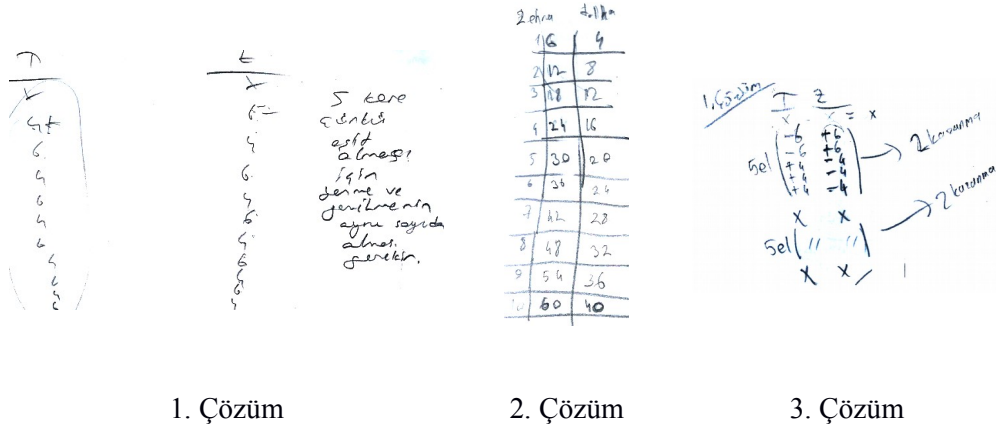 T
4
6
4
6
4
6
4
6
4
6
4
6
4
6
4
6
6
4
5 kere
çünkü
eşit
olması
için
yenme ve
yenilmenin
aynı sayıda
olması
gerekir.
Zehra
1 6 4
2 12 8
3 18 12
4 24 16
5 30 20
6 36 24
7 42 28
8 48 32
9 54 36
60 40
1. Çözüm
T Z
x = x
-6 +6
-6 +6
+4 -4
+4 -4
+4 -4
5el
2 kazanma
x x
5el ( " " )
2 kazanma
x x
1. Çözüm
2. Çözüm
3. Çözüm